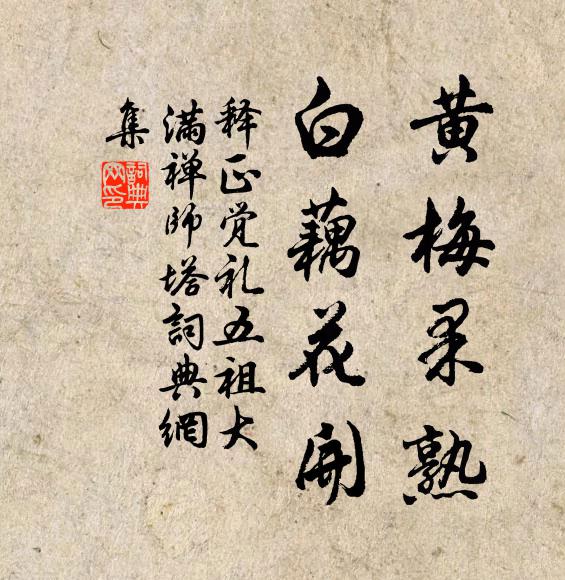 黄梅果熟
白藕花開
释正觉礼五祖大
满禅師塔詞典網
集
詞典網印